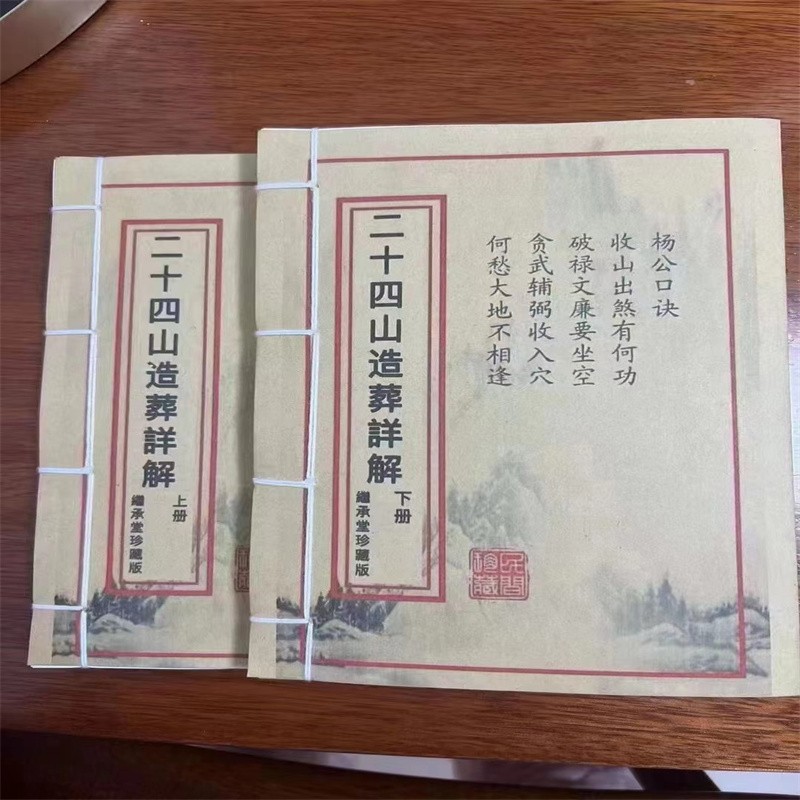 二十四山造葬詳解
上册
繼承堂珍藏版
杨公口诀
收山出煞有何功
破禄文廉要坐空
贪武辅弼收入穴
何愁大地不相逢
二十四山造葬詳解
下册
繼承堂珍藏版
民間
珍藏